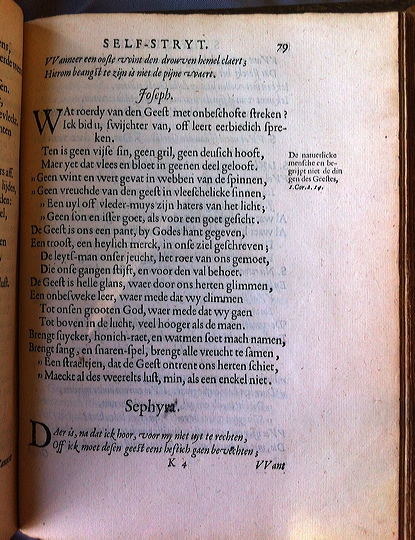 SELF-STRYT. 79
VVanneer een ooste vvint den drouven hemel claert;
Hierom beangst te zijn is niet de pijne vvaert.
Joseph.
WAt roerdy van den Geest met onbeschofte streken?
Ick bid u, swijchter van, off leert eerbiedich spre-
ken.
Ten is geen vijse sin, geen gril, geen deusich hooft,
Maer yet dat vlees en bloet in geenen deel gelooft.
„ Geen wint en wert gevat in webben van de spinnen,
„ Geen vreuchde van den geest in vleeschelicke sinnen,
„ Een uyl off vleder-muys zijn haters van het licht;
„ Geen son en ister goet, als voor een goet gesicht.
De Geest is ons een pant, by Godes hant gegeven,
Een troost, een heylich merck, in onse ziel geschreven;
De leytsman onser jeucht, het roer van ons gemoet,
Die onse gangen stijft, en voor den val behoet.
De Geest is helle glans, waer door ons herten glimmen,
Een onbesweke leer, waer mede dat wy climmen
Tot onsen grooten God, waer mede dat wy gaen
Tot boven in de lucht, veel hooger als de maen.
Brengt suycker, honich-raet, en watmen soet mach namen,
Brengt sang, en snaren-spel, brengt alle vreucht te samen,
„ Een straeltjen, dat de Geest ontrent ons herten schiet,
„ Maeckt al des weerelts lust, min, als een enckel niet.
De natuerlicke
mensche en be-
grijpt niet de din
gen des Geestes,
1. Cor. 2. 14.
Sephyra.
DAer is, na dat ick hoor, voor my niet uyt te rechten,
Off ick moet desen geest eens heftich gaen bevechten;
K 4 VVant